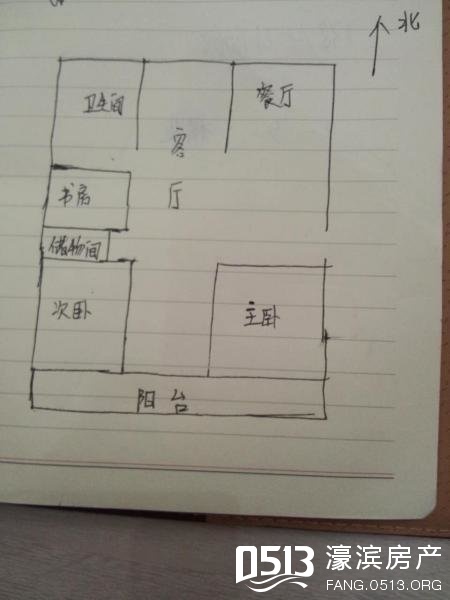 北
卫生间
客厅
餐厅
书房
储物间
次卧
主卧
阳台
0513 濠滨房产
FANG.0513.ORG